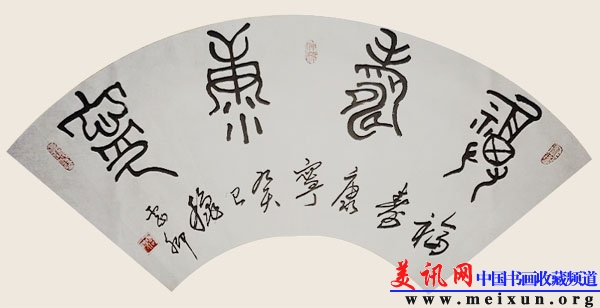 福壽康寧
福壽康寧癸巳龝
美讯网 中国书画收藏频道
www.meixun.org